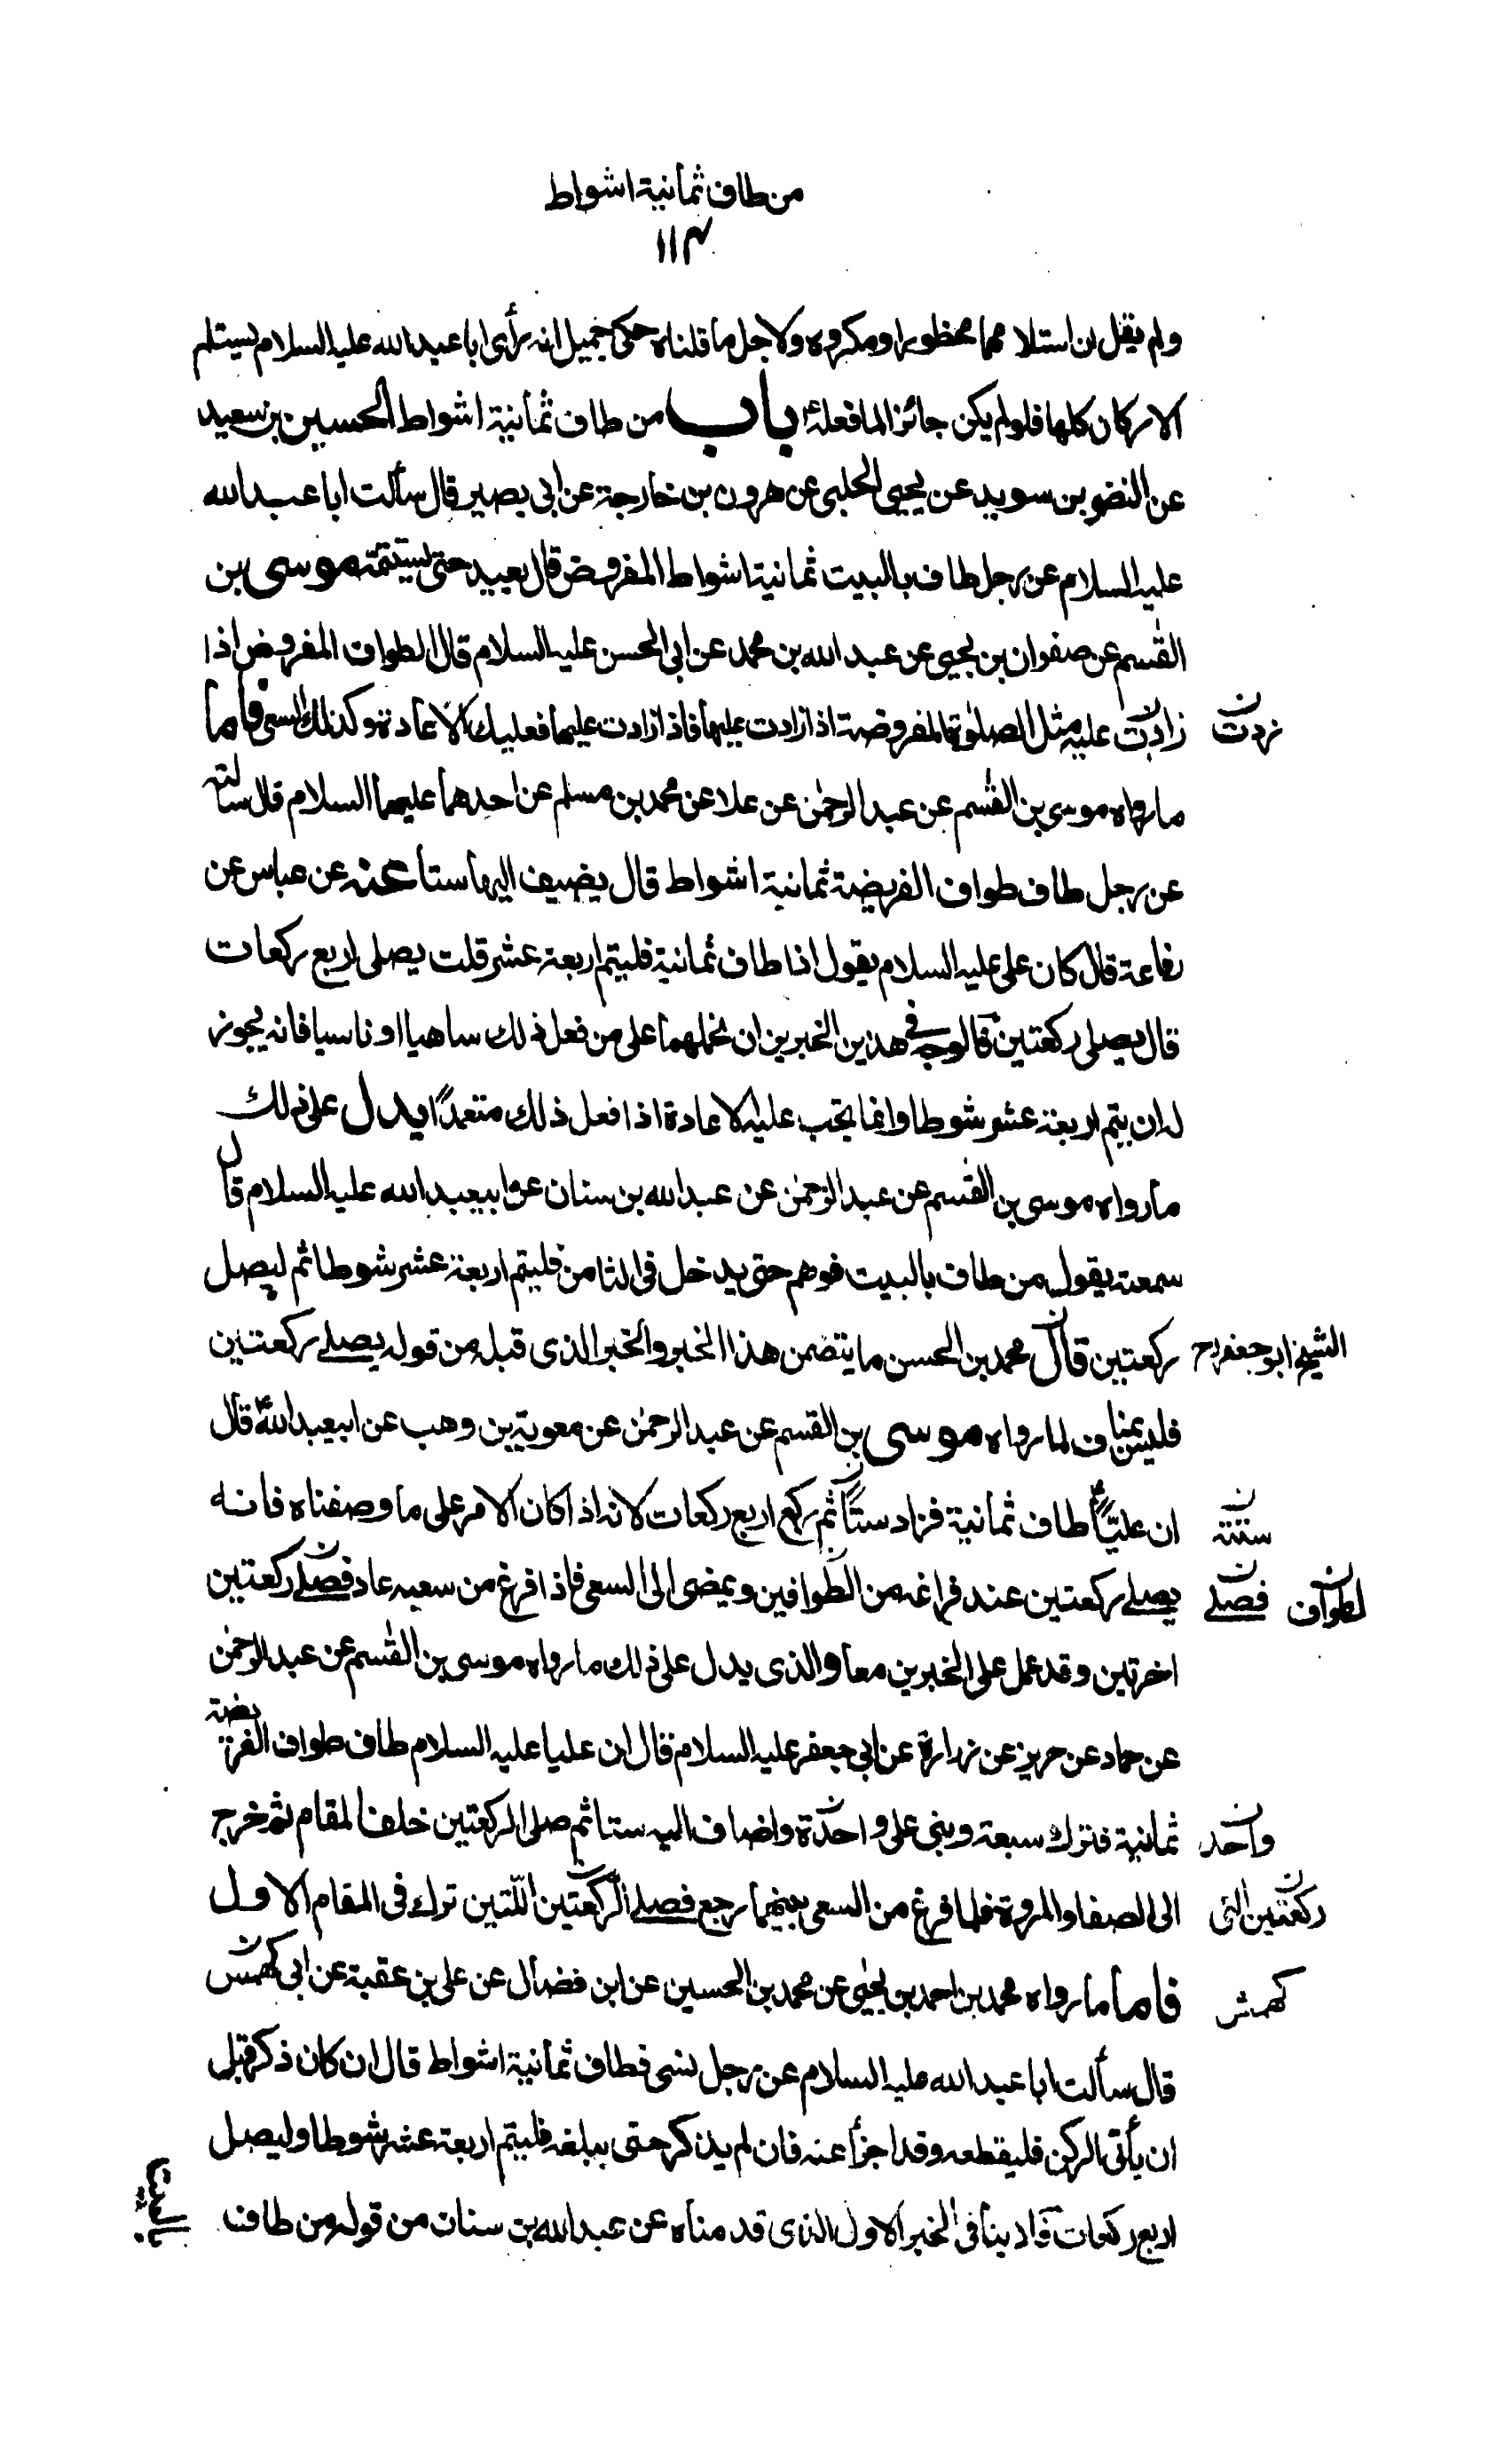 من طاف ثمانية اشواط
١١٣
ولم يقل ان استلامهما محظور او مكروه ولاجل ما قلناه حكى جميل انه رأى ابا عبد الله عليه السلام يستلم
الاركان كلها فلو لم يكن جائزا لما فعله باب من طاف ثمانية اشواط الحسين بن سعيد
عن النضر بن سويد عن يحيى الحلبى عن هرون بن خارجة عن ابى بصير قال سألت ابا عبد الله
عليه السلام عن رجل طاف بالبيت ثمانية اشواط المفروض قال يعيد حتى يستتمه موسى بن
القسم عن صفوان بن يحيى عن عبد الله بن محمد عن ابى الحسن عليه السلام قال الطواف المفروض اذا
زادت عليه مثل الصلوة المفروضة اذا زادت عليها فاذا زادت عليها فعليك الاعادة وكذلك السعى فاما
زدت
ما رواه موسى بن القسم عن عبد الرحمن عن علا عن محمد بن مسلم عن احدهما عليهما السلام قال سالته
عن رجل طاف طواف الفريضة ثمانية اشواط قال يضيف اليها ستا عنه عن عباس عن
رفاعة قال كان على عليه السلام يقول اذا طاف ثمانية فليتم اربعة عشر قلت يصلى اربع ركعات
قال يصلى ركعتين فالوجه فى هذين الخبرين ان نحملهما على من فعل ذلك ساهيا او ناسيا فانه يجوز
له ان يتم اربعة عشر شوطا وانما يجب عليه الاعادة اذا فعل ذلك متعمدًا يدل على ذلك
ما رواه موسى بن القسم عن عبد الرحمن عن عبد الله بن سنان عن ابيعبد الله عليه السلام قال
سمعته يقول من طاف بالبيت فوهم حتى يدخل فى الثامن فليتم اربعة عشر شوطا ثم ليصل
ركعتين قال محمد بن الحسن ما يتضمن هذا الخبر والخبر الذى قبله من قوله يصلى ركعتين
الشيخ ابو جعفر رح
فليس بمناف لما رواه موسى بن القسم عن عبد الرحمن عن معوية بن وهب عن ابيعبد اللهؑ قال
ان عليّاًؑ طاف ثمانية فزاد ستاً ثم ركع اربع ركعات لانه اذا كان الامر على ما وصفناه فانه
ستة
يصلى ركعتين عند فراغه من الطوافين ويمضى الى السعى فاذا فرغ من سعيه عاد فصلى ركعتين
فصلى لطواف
اخرتين وقد عمل على الخبرين معا والذى يدل على ذلك ما رواه موسى بن القسم عن عبد الرحمن
عن حماد عن حريز عن زرارة عن ابى جعفر عليه السلام قال ان عليا عليه السلام طاف طواف الفريضة
ثمانية فترك سبعة وبنى على واحدة واضاف اليه ستا ثم صلى الركعتين خلف المقام ثم خرج
واحد
الى الصفا والمروة فلما فرغ من السعى بينهما رجع فصلى الركعتين اللتين ترك فى المقام الاول
ركعتين التى
فاما ما رواه محمد بن احمد بن يحيى عن محمد بن الحسين عن ابن فضال عن على بن عقبة عن ابى كهمس
كهمش
قال سألت ابا عبد الله عليه السلام عن رجل نسى فطاف ثمانية اشواط قال ان كان ذكر قبل
ان يأتى الركن فليقطعه وقد اجزأ عنه فان لم يذكر حتى يبلغه فليتم اربعة عشر شوطا وليصل
اربع ركعات فلا ينافى الخبر الاول الذى قدمناه عن عبد الله بن سنان من قوله من طاف
بالبيت